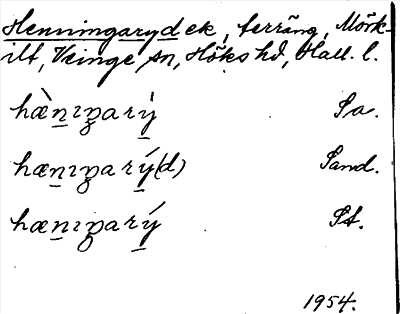 Henningaryd ek, terräng, Mörk-
ilt, Veinge sn, Höks hd, Hall. l.
hæ̀nɪŋarỳ Sa.
hænɪŋarý(d) Sand.
hænɪŋarý St.
1954.